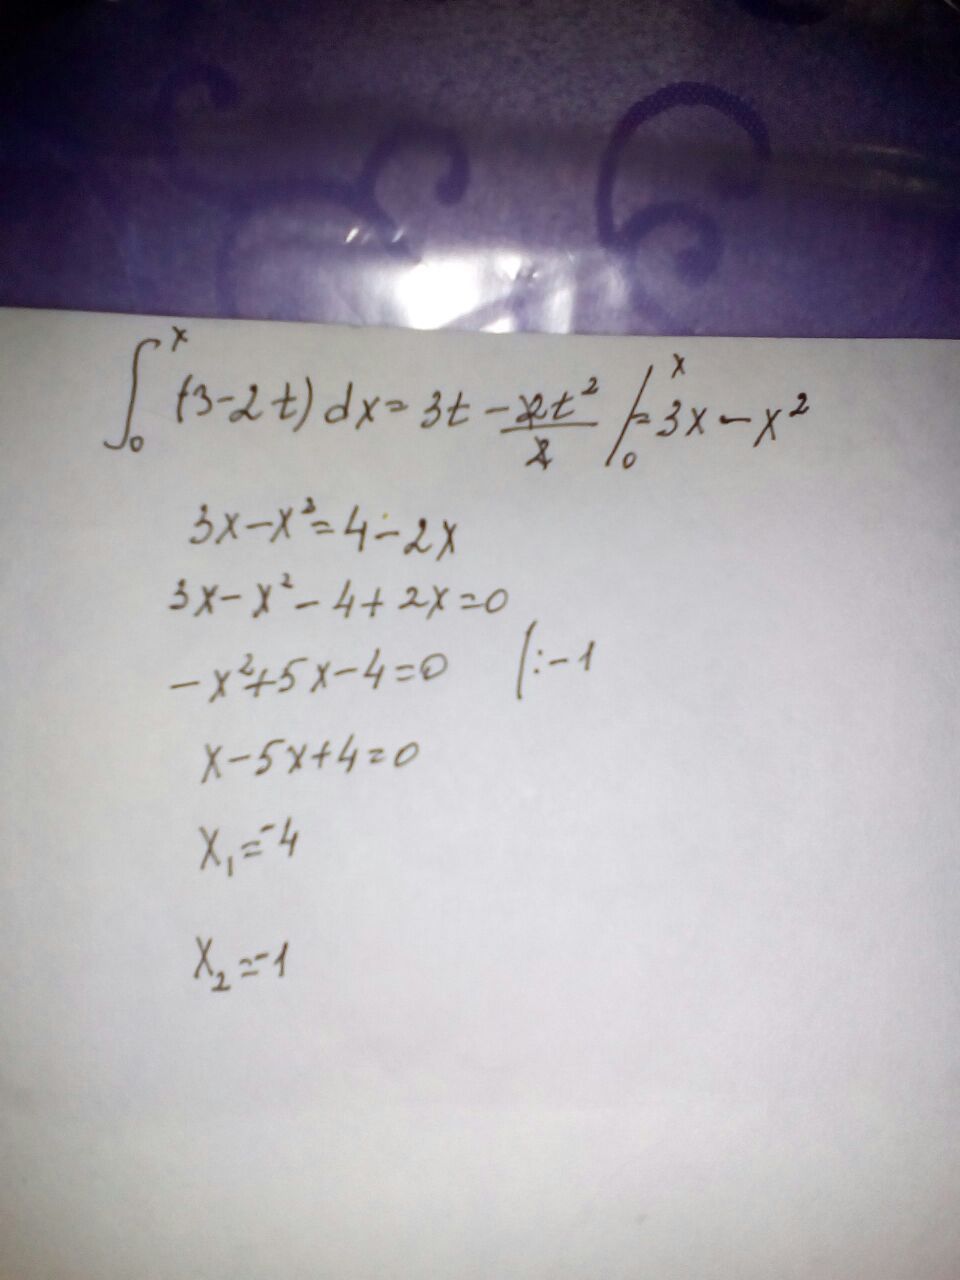 ∫₀ˣ (3-2t) dx = 3t - 2t²/2 |₀ˣ = 3x - x²
3x - x² = 4 - 2x
3x - x² - 4 + 2x = 0
-x² + 5x - 4 = 0 |: -1
x - 5x + 4 = 0
x₁ = -4
x₂ = -1